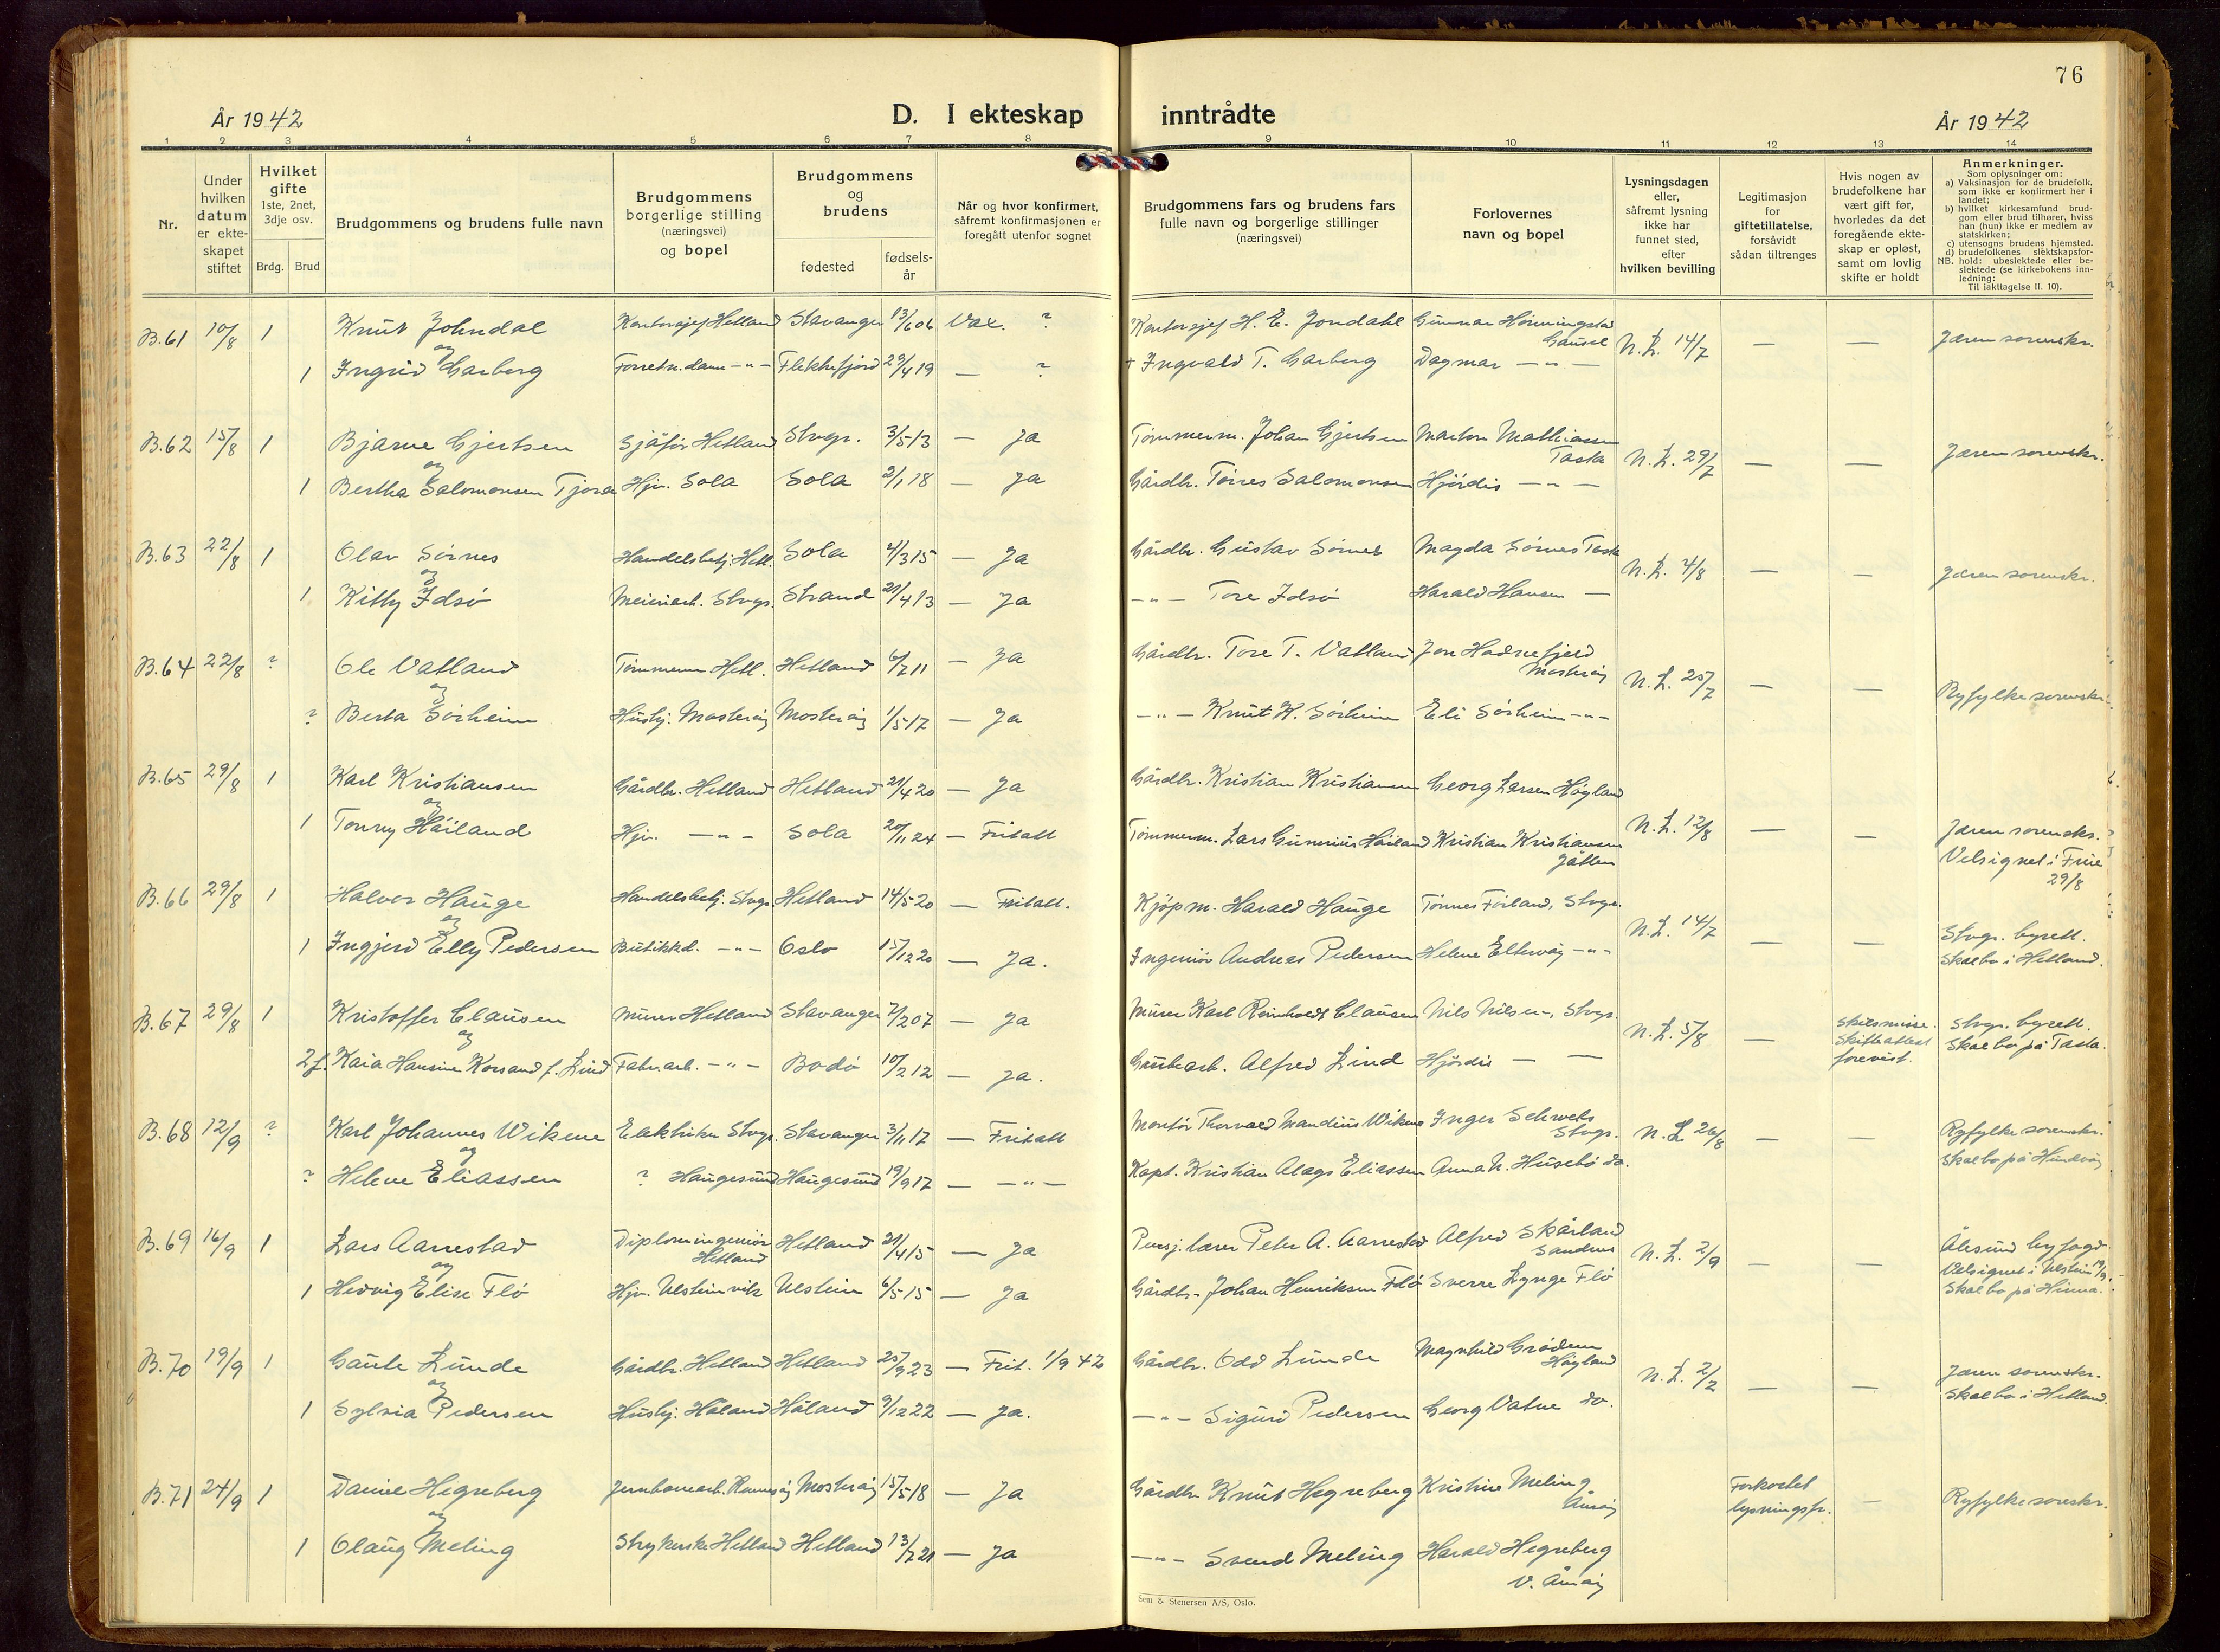 76
År 1942
D. I ekteskap inntrådte
År 1942
1 2 3 4 5 6 7 8 9 10 11 12 13 14
Nr.
Under hvilken datum er ekteskapet stiftet
Hvilket gifte 1ste, 2net, 3dje osv.
Brdg. Brud
Brudgommens og brudens fulle navn
Brudgommens borgerlige stilling (næringsvei) og bopel
Brudgommens og brudens
fødested
fødselsår
Når og hvor konfirmert, såfremt konfirmasjonen er foregått utenfor sognet
Brudgommens fars og brudens fars fulle navn og borgerlige stillinger (næringsvei)
Forlovernes navn og bopel
Lysningsdagen eller, såfremt lysning ikke har funnet sted, efter hvilken bevilling
Legitimasjon for giftetillatelse, forsåvidt sådan tiltrenges
Hvis nogen av brudefolkene har vært gift før, hvorledes da det foregående ekteskap er opløst, samt om lovlig skifte er holdt
Anmerkninger.
Som oplysninger om:
a) Vaksinasjon for de brudefolk, som ikke er konfirmert her i landet;
b) hvilket kirkesamfund brudgom eller brud tilhører, hviss han (hun) ikke er medlem av statskirken;
c) utensogns brudens hjemsted.
d) brudefolkenes slektskapsforhold: ubeslektede eller beslektede (se kirkebokens innledning:
NB. Til iakttagelse II. 10).
B.61 10/8 1 Knut Johndal Kontorsjef Hetland Stavanger 13/6 06 Vax. ? Kontorsjef H. E. Jondahl Gunnar Hønningstad Gausel N.L. 14/7 — — Jæren sorenskr.
og
1 Ingrid Garborg Forretn.dame -"- Flekkefjord 29/4 19 — ? + Ingvald T. Garborg Dagmar -"-
B.62 15/8 1 Bjarne Gjertsen Sjåfør Hetland Stvgr. 3/5 13 — Ja Tømmerm. Johan Gjertsen Marton Mathiassen Tasta N.L. 29/7 — — Jæren sorenskr.
og
1 Bertha Salomonsen Tjora Hjv. Sola Sola 2/1 18 — Ja Gårdbr. Tørres Salomonsen Hjørdis -"-
B.63 22/8 1 Olav Sørnes Handelsbetj. Hetl. Sola 4/3 15 — Ja Gårdbr. Gustav Sørnes Magda Sørnes Tasta N.L. 4/8 — — Jæren sorenskr.
og
1 Kitty Idsø Meieriarb. Stvgr. Strand 21/4 13 — Ja -"- Tore Idsø Harald Hansen —
B.64 22/8 ? Ole Vatland Tømmerm. Hetl. Hetland 6/7 11 — Ja Gårdbr. Tore T. Vatland Jon Hodnefjeld Mosterøy N.L. 25/7 — — Ryfylke sorenskr.
og
? Berta Sørheim Hushj. Mosterøy Mosterøy 1/5 17 — Ja -"- Knut K. Sørheim Eli Sørheim -"-
B.65 29/8 1 Karl Kristiansen Gårdbr. Hetland Hetland 21/4 20 — Ja Gårdbr. Kristian Kristiansen Georg Larsen Høyland N.L. 12/8 — — Jæren sorenskr.
og
1 Tonny Håiland Hjv. -"- Sola 20/11 24 — Fritatt Tømmerm. Lars Gunerius Håiland Kristian Kristiansen Jåtten Velsignet i Frue 29/8
B.66 29/8 1 Halvor Hauge Handelsbetj. Stvgr. Hetland 14/5 20 — Fritatt. Kjøpm. Harald Hauge Tønnes Førland, Stvgr. N.L. 14/7 — — Stvgr. byrett.
og
1 Ingjerd Elly Pedersen Butikkd. -"- Oslo 15/12 20 — Ja. Ingeniør Andreas Pedersen Helene Eltervåg -"- Skal bo i Hetland.
B.67 29/8 1 Kristoffer Clausen Murer Hetland Stavanger 7/2 07 — Ja Murer Karl Reinholdt Clausen Nils Nilsen, Stvgr. N.L. 5/8 — Skilsmisse. Skifteattest forevist. Stvgr. byrett. Skal bo på Tasta.
og
2f. Kaia Hansine Korsand f. Lind Fabr.arb. -"- Bodø 10/2 12 — Ja. Grubearb. Alfred Lind Hjørdis — —
B.68 12/9 ? Karl Johannes Wikene Elektriker Stvgr. Stavanger 3/11 17 — Fritatt Montør Thorvald Mandius Wikene Inger Schwebs Stvgr. N.L. 26/8 — — Ryfylke sorenskr.
og
? Helene Eliassen ? Haugesund Haugesund 19/9 17 — -"- Kapt. Kristian Alags Eliassen Anna N. Husebø do. Skal bo på Hundvåg
B.69 16/9 1 Lars Aarrestad Diplomingeniør Hetland Hetland 21/4 15 — Ja Pensj. lærer Peter A. Aarrestad Alfred Skårland Sandnes N.L. 2/9 — — Ålesund byfogd.
og
1 Hedvig Elise Flø Hjv. Ulsteinvik Ulstein 6/5 15 — Ja Gårdbr. Johan Henriksen Flø Sverre Lynge Flø Velsignet i Ulstein 19/9. Skal bo på Hinna.
B.70 19/9 1 Gaute Lunde Gårdbr. Hetland Hetland 25/9 23 — Frit. 1/9 42 Gårdbr. Odd Lunde Magnhild Grødem Høyland N.L. 2/7 — — Jæren sorenskr.
og
1 Sylvia Pedersen Hushj. Håland Håland 9/12 22 — Ja. -"- Sigurd Pedersen Georg Vatne do. Skal bo i Hetland.
B.71 24/9 1 Daniel Hegreberg Jernbanearb. Rennesøy Mosterøy 15/5 18 — Ja Gårdbr. Knut Hegreberg Kristine Meling Åmøy Forkortet lysningsfr. — Ryfylke soreskr.
og
1 Olaug Meling Strykerske Hetland Hetland 13/7 21 — Ja -"- Svend Meling Harald Hegreberg V. Åmøy
Sem & Stenersen A/S, Oslo.